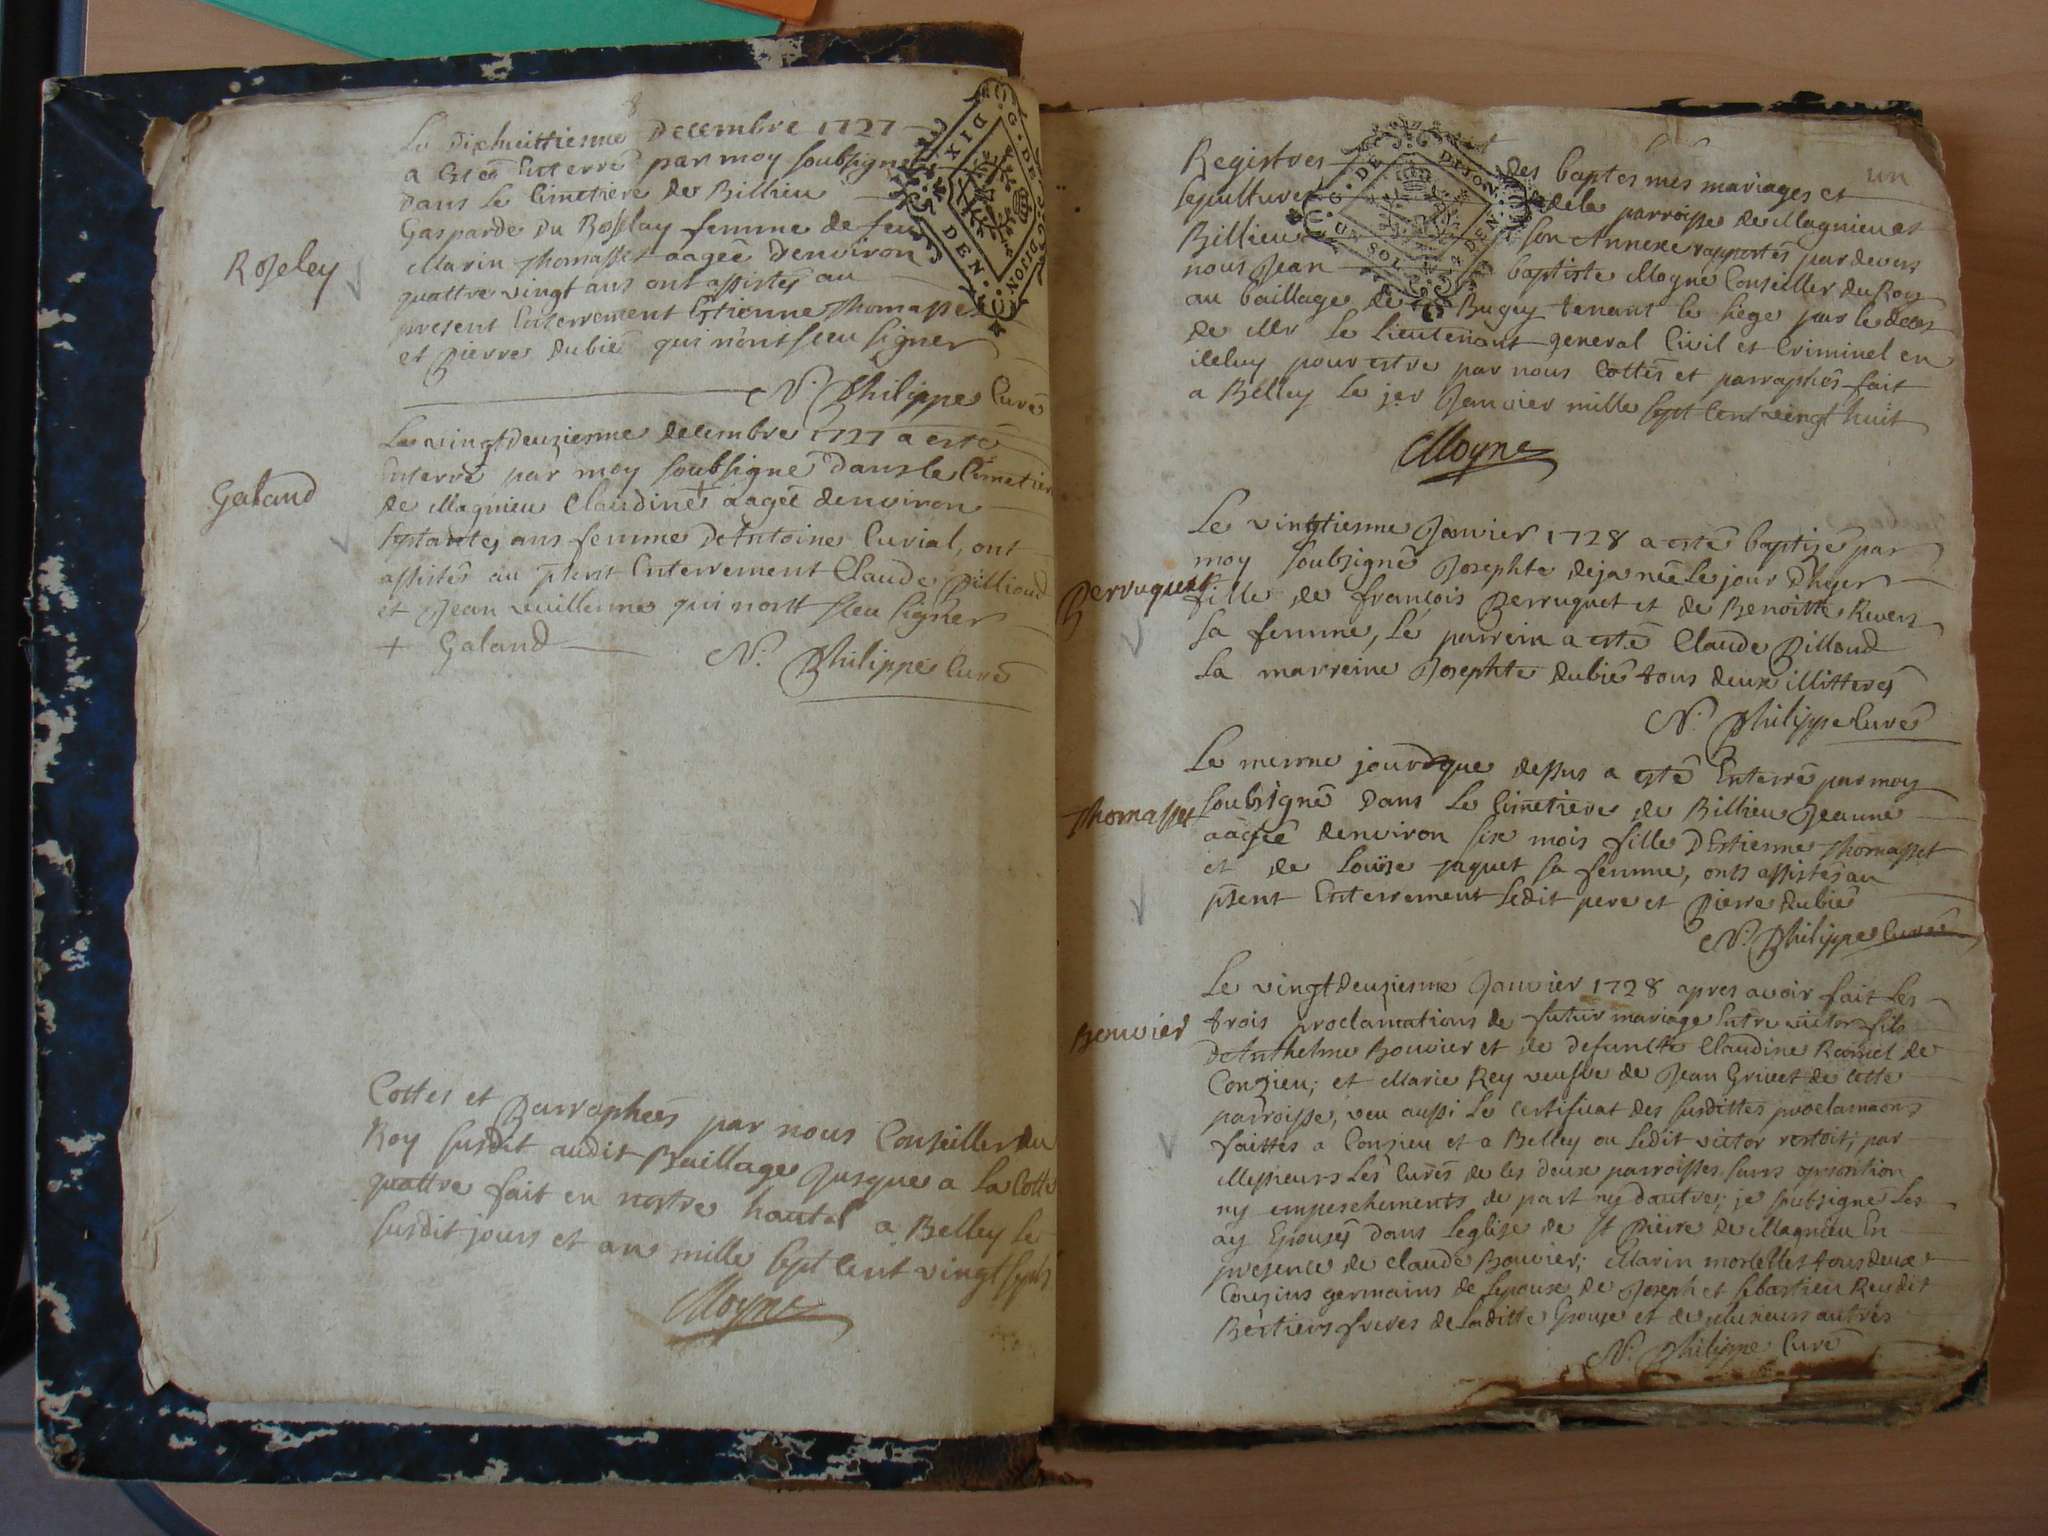 Le Dixhuittiesme Decembre 1727
a estée Enterré par moy soubsigné
Dans Le Cimetiere de Billieu
Gasparde Du Rosselay femme de feu
Marin Thomasset aagée denviron
quattre vingt ans ont assistés au
present Enterrement Estienne Thomasset
et Pierre Dubié qui n'ont sceu signer
N. Philippe Curé
Roseley
Le vingtdeuziesme decembre 1727 a esté
Enterré par moy soubsigné Dans le Cimetiere
de Magnieu Claudine + aagée denviron
septantes ans femme DAntoine Curial, ont
assistés au pñt Enterrement Claude Billioud
et Jean vuillerme qui nontt sceu signer
+ Galand
N. Philippe Curé
Galand
Cottes et Parraphees par nous Conseiller du
Roy susdit audit Baillage Jusque a La Cotte
quattre fait en nostre hautel a Belley Le
susdit jours et an mille sept cent vingt sept
Moyne
un
Registres des baptesmes mariages et
sepultures de la parroisse de Magnieu et
Billieu son Annexe rapportés par devers
nous Jean baptiste Moyne Conseiller du Roy
au baillage de Bugey tenant le siege par le deces
de Mr le Lieutenant general Civil et Criminel en
iceluy pour estre par nous Cottés et parraphés fait
a Belley Le jer Janvier mille sept cent vingt huit
Moyne
G. DE DIJON
UN SOL
DIX DEN.
Le vingtiesme Janvier 1728 a esté baptizé par
moy soubsigné Josephte dejanée Le jour Dhyer
fille de françois Perruquet et de Benoitte Revers
sa femme, Le parrein a esté Claude Billoud
La marreine Josephte Dubié tous deux illitterés
N. Philippe Curé
Perruquet
Le mesme jour que dessus a esté Enterré par moy
soubsigné Dans Le Cimetiere de Billieu Jeanne
aagée denviron six mois fille DEstienne Thomasset
et de Louïse Jaquet sa femme, onts assistés au
pñsent Enterrement Ledit pere et Pierre Dubié
N. Philippe Curé
Thomasset
Le vingtdeuziesme Janvier 1728 apres avoir fait Les
trois proclamations de futur mariage Entre victor fils
DAnthelme Bouvier et de defuncte Claudine de
Conzieu; et Marie Rey veufve de Jean Grivet de cette
parroisse, veu aussi Le certificat des susdittes proclamaõns
faittes a Conzieu et a Belley ou Ledit victor restoit; par
Messieurs Les Curés de les deux parroisses sans oposition
ny empeschements de part ny dautre; je soubsigné Les
ay Epousés Dans Leglise de St Pierre de Magnieu En
presence de claude Bouvier; Marin mortellet tous deux
Cousins germains de Lepoux de Joseph et sebastien Rey dit
Bertiers freres de Laditte Epouse et de plusieurs autres
N. Philippe Curé
Bouvier